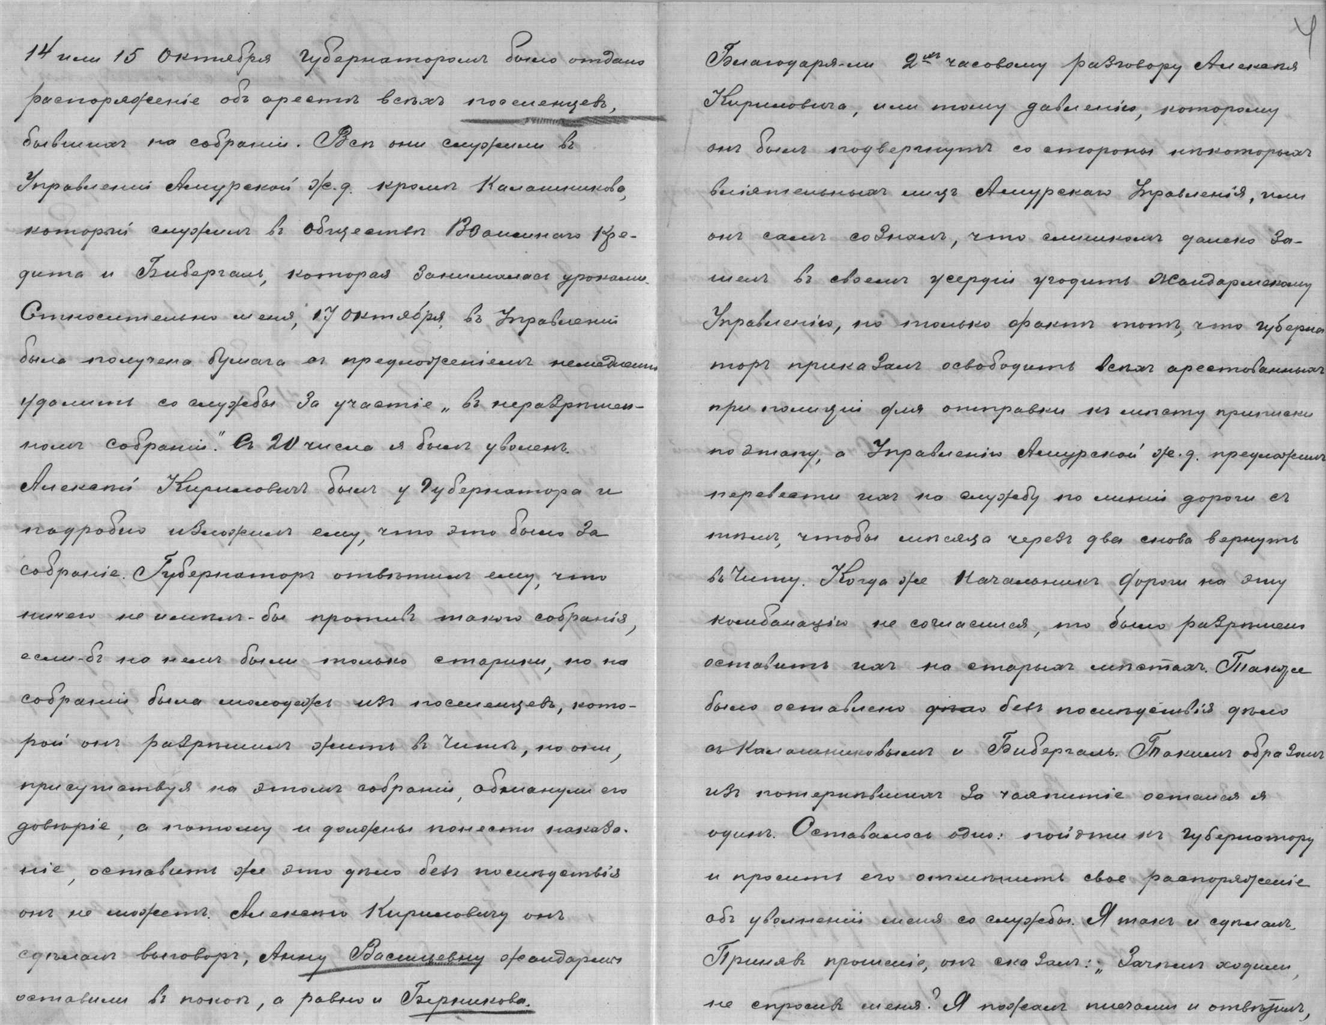 14 или 15 Октября Губернаторомъ было отдано
распоряженіе объ арестѣ всѣхъ поселенцевъ,
бывшихъ на собраніи. Всѣ они служили въ
Управленіи Амурской ж.д. кромѣ Калашникова,
который служилъ въ Обществѣ Взаимнаго Кре-
дита и Бибергаль, которая занималась уроками.
Относительно меня, 17 Октября, въ Управленіи
была получена бумага съ предложеніемъ немедленно
удалить со службы за участіе „въ неразрѣшен-
номъ собраніи". Съ 20 числа я былъ уволенъ.
Алексѣй Кириловичъ былъ у Губернатора и
подробно изложилъ ему, что это было за
собраніе. Губернаторъ отвѣтилъ ему, что
ничего не имѣлъ-бы противъ такого собранія,
если-бъ на немъ были только старики, но на
собраніи была молодежь изъ поселенцевъ, кото-
рой онъ разрѣшилъ жить въ Читѣ, но они,
присутствуя на этомъ собраніи, обманули его
довѣріе, а потому и должны понести наказа-
ніе, оставить же это дѣло безъ послѣдствія
онъ не можетъ. Алексѣю Кириловичу онъ
сдѣлалъ выговоръ, Анну Васильевну жандармы
оставили въ покоѣ, а равно и Бѣрникова.
4
Благодаря-ли 2ухъ часовому разговору Алексѣя
Кириловича, или тому давленію, которому
онъ былъ подвергнутъ со стороны нѣкоторыхъ
вліятельныхъ лицъ Амурскаго Управленія, или
онъ самъ созналъ, что слишкомъ далеко за-
шелъ въ своемъ усердіи угодить Жандармскому
Управленію, но только фактъ тотъ, что Губерна
торъ приказалъ освободить всѣхъ арестованныхъ
при полиціи для отправки къ мѣсту приписки
по этапу, а Управленію Амурской ж.д. предложилъ
перевести ихъ на службу по линіи дороги съ
тѣмъ, чтобы мѣсяца черезъ два снова вернуть
въ Читу. Когда же Начальникъ дороги на эту
комбинацію не согласился, то было разрѣшено
оставить ихъ на старыхъ мѣстахъ. Также
было оставлено безъ послѣдствія дѣло
съ Калашниковымъ и Бибергаль. Такимъ образомъ
изъ потерпѣвшихъ за чаепитіе остался я
одинъ. Оставалось одно: пойти къ Губернатору
и просить его отмѣнить свое распоряженіе
объ увольненіи меня со службы. Я такъ и сдѣлалъ.
Принявъ прошеніе, онъ сказалъ: „Зачѣмъ ходили,
не спросивъ меня? Я пожалъ плечами и отвѣтилъ,